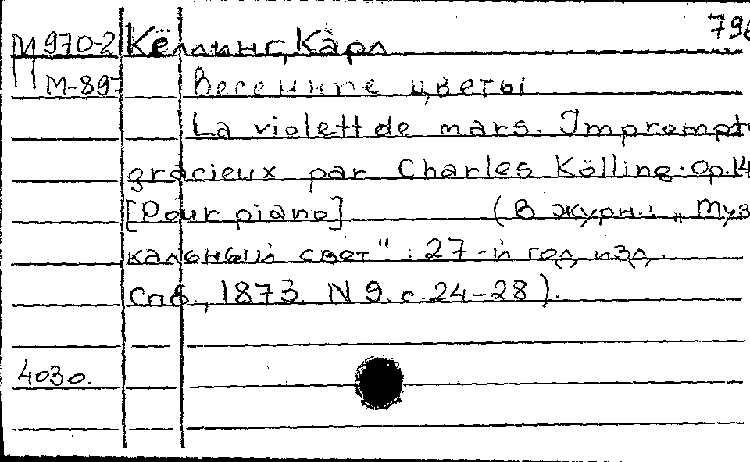 796
М970-2 Кёллинг, Карл
М-897 Весенние цветы
La violett de mars. Imprompt
gracieux par Charles Kölling. Op. 14
[Pour piano] (В журн.: „Музы
кальный свет“. 27-й год изд.
Спб., 1873. N 9. с 24-28).
4030.